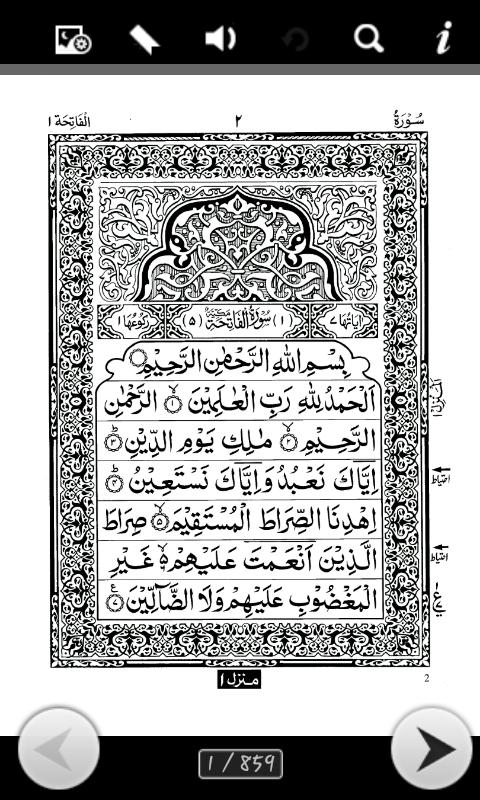 سُورَةُ ٢ الْفَاتِحَة ١
اٰيَاتُهَا ٧ (١) سُوْرَةُ الْفَاتِحَةِ مَكِّيَّةٌ (٥) رُكُوْعُهَا ١
بِسْمِ اللهِ الرَّحْمٰنِ الرَّحِيْمِ
اَلْحَمْدُ لِلّٰهِ رَبِّ الْعٰلَمِيْنَ ١ الرَّحْمٰنِ
الرَّحِيْمِ ٢ مٰلِكِ يَوْمِ الدِّيْنِ ٣
اِيَّاكَ نَعْبُدُ وَاِيَّاكَ نَسْتَعِيْنُ ٤
اِهْدِنَا الصِّرَاطَ الْمُسْتَقِيْمَ ٥ صِرَاطَ
الَّذِيْنَ اَنْعَمْتَ عَلَيْهِمْ ٦ غَيْرِ
الْمَغْضُوْبِ عَلَيْهِمْ وَلَا الضَّآلِّيْنَ ٧
المنزل ١
احتياط
احتياط
ع
منزل ١
2
1 / 859